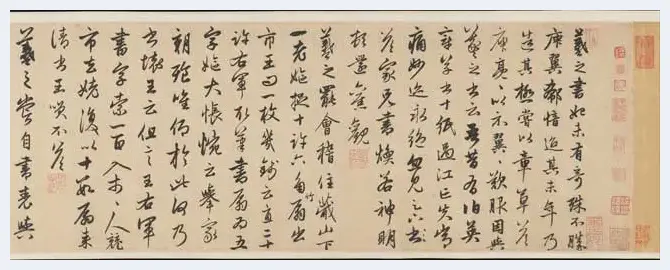 羲之書初未有奇殊不勝
庾翼郗愔迨其末年乃
造其極嘗以章草答
庾亮亮以示翼翼歎服因與
羲之書云吾昔有伯英
章草書十紙過江亡失常
痛妙迹永絕忽見足下書
答家兄書煥若神明
頓還舊觀
羲之罷會稽住蕺山下
一老嫗捉十許六角竹扇出
市王曰一枚幾錢云直二十
許右軍取筆書扇扇為五
字嫗大悵惋云舉家
朝飱唯仰於此何乃
書壞王云但言王右軍
書字索一百入市市人競
市去姥復以十數扇來
請書王笑不答
羲之嘗自書表與